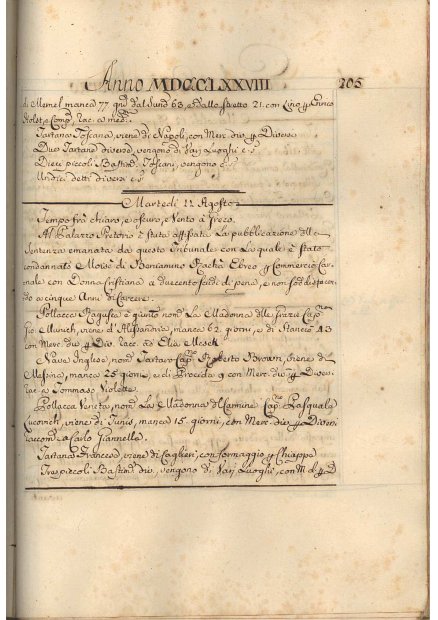 Anno MDCCLXXVIII 205
di Memel manca 77 gni dal Sund 63, e dallo stretto 21. con Lino p Enrico
Holst, e Comp. rac. a med.
Tartana Toscana, viene di Napoli, con Merc. div. p Diversi
Due Tartane diverse, vengono di Varj Luoghi c. s.
Dieci piccoli Bastim. Toscani, vengono c. s.
Undici detti diversi c. s.
Martedì 11 Agosto
Tempo frà chiaro, e oscuro, e Vento à Greco.
Al Palazzo Pretorio è stata affissata La pubblicazione dlla
Sentenza emanata da questo Tribunale con La quale è stato
condannato Moisè di Beniamino Ebreo p Commercio Car-
nale con Donna Cristiana a duecento scudi di pena, e non sodisfacen
do a cinque Anni di Carcere.
Pollacca Ragusea è giunta nom. La Madonna dlle Grazie Cap.
Gio. viene d'Alessandria, manca 62. giorni, e di Stanciò 43
con Merc. div. p Div. rac. ad Elia
Nave Inglese, nom. Tartaro Cap. Roberto Brown, viene di
Messina, manca 25 giorni, e di Procida 9 con Merc. div. p Diversi
rac. a Tommaso
Pollacca Veneta, nom. La Madonna del Carmine Cap. Pasquale
viene di Tunis, manca 15. giorni, con Merc. div. p Diversi
raccom. a Carlo Giannelli
Tartana Francese, viene di Caglieri, con formaggio p Chiappe
Tre piccoli Bastim. div. vengono di Varj Luoghi, con M. d. p D.